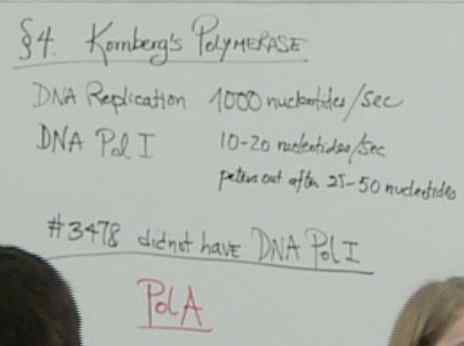 §4. Kornberg's Polymerase
DNA Replication 1000 nucleotides/sec
DNA Pol I 10-20 nucleotides/sec
peters out after 25-50 nucleotides
#3478 didnot have DNA Pol I
Pol A